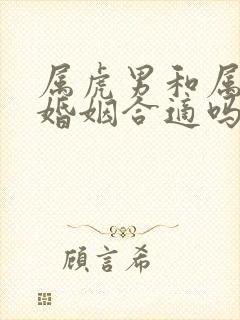 属虎男和属
婚姻合适吗
顾言希